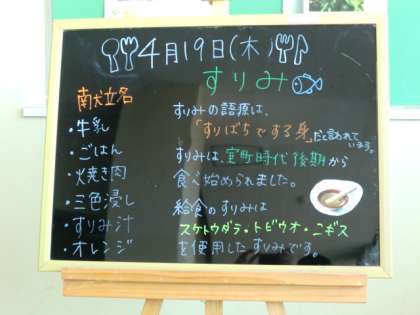 4月19日(木)
すりみ
献立名
・牛乳
・ごはん
・焼き肉
・三色浸し
・すりみ汁
・オレンジ
すりみの語源は、
「すりばちでする身」だと言われています。
すりみは、室町時代後期から
食べ始められました。
給食のすりみは
スケトウダラ・トビウオ・ニギス
を使用したすりみです。